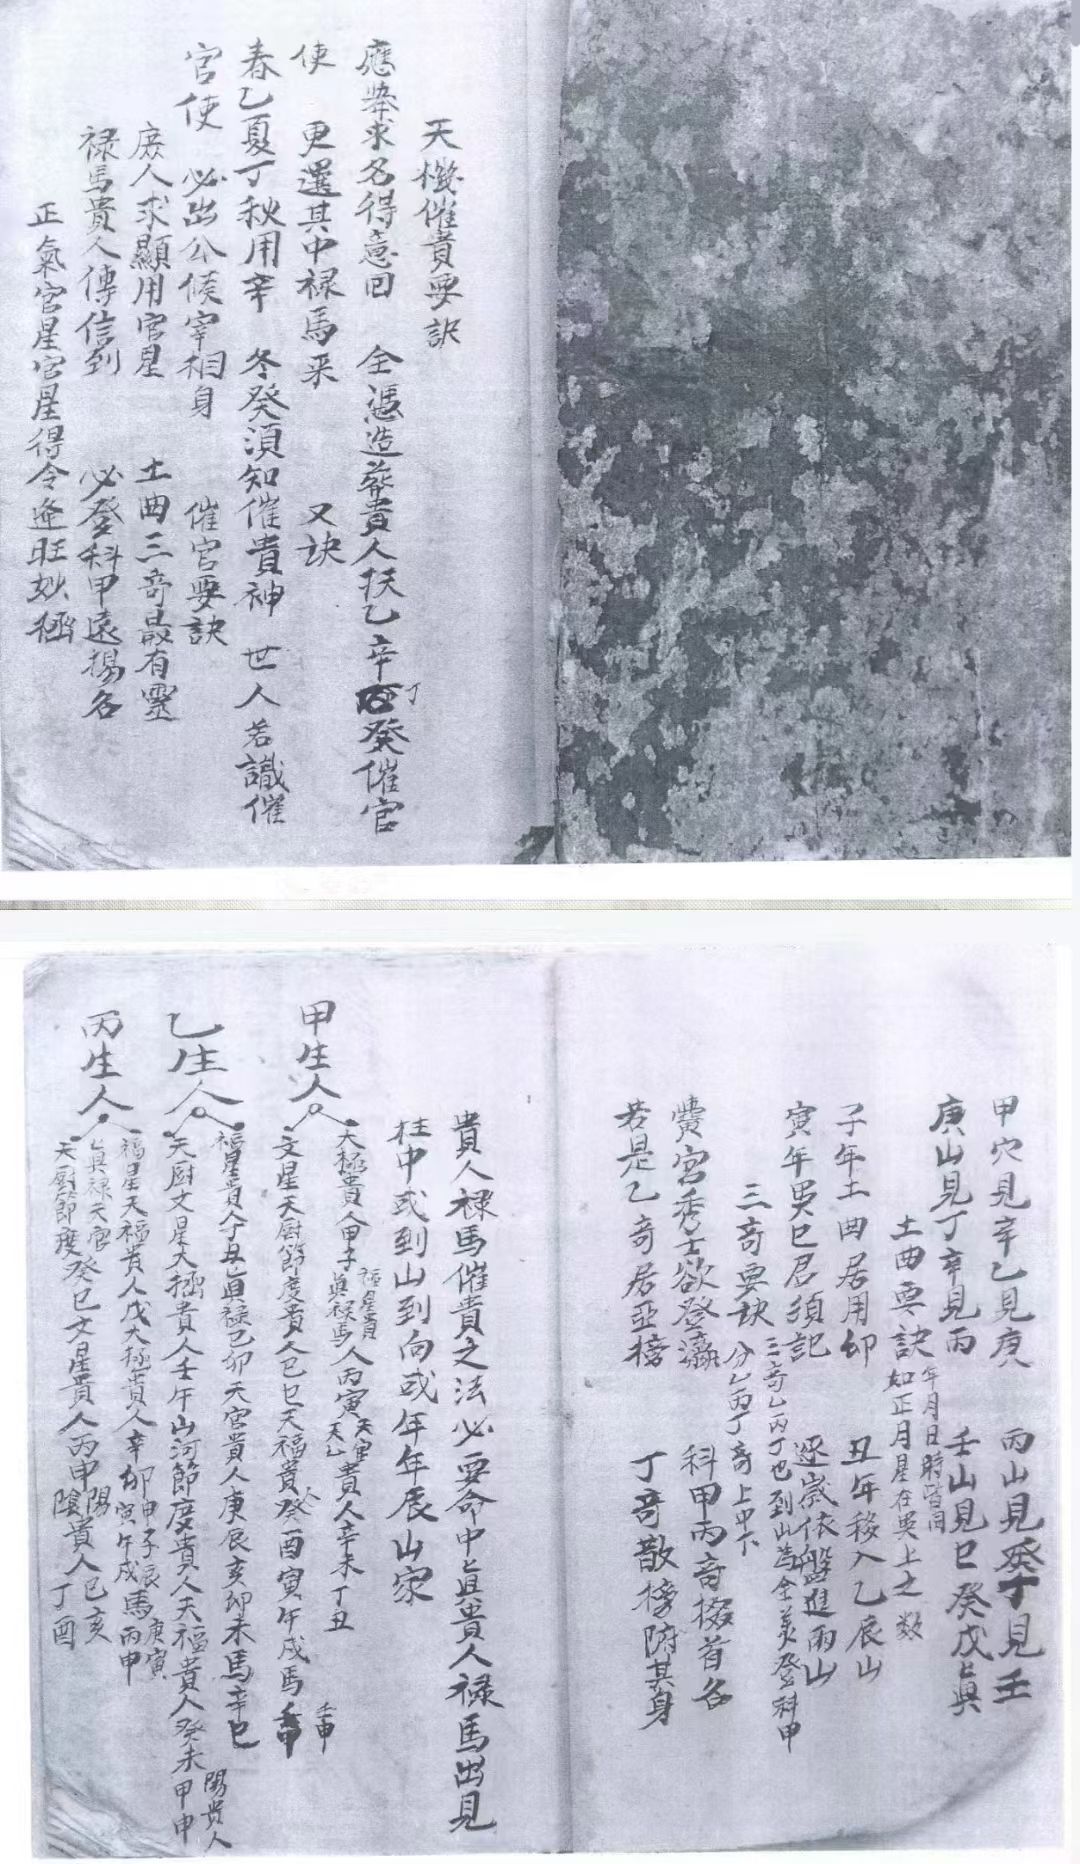 天機催貴要訣
應舉求名得意回 全憑造葬貴人扶乙辛丁癸催官
使 更選其中禄馬來 又訣
春乙夏丁秋用辛 冬癸須知催貴神 世人若識催
官使 必出公候宰相身 催官要訣
庶人求顯用官星 土曲三奇最有靈
禄馬貴人傳信到 必登科甲遠揚名
正氣官星官星得令逢旺妙極
甲穴見辛乙見庚 丙山見癸丁見壬
庚山見丁辛見丙 壬山見巳癸戊真
土曲要訣 年月日時皆同 如正月星在異上之数
子年土曲居用卯 丑年移入乙辰山
寅年巽巳君須記 逐歲依盤進兩山
三奇要訣 三奇乙丙丁也到山為全美登科甲 分乙丙丁奇上中下
黌宮秀士欲登瀛 科甲丙奇掇首名
若是乙奇居亞榜 丁奇散榜附其身
貴人禄馬催貴之法必要命中真貴人禄馬出見
柱中或到山到向或年年辰山家
甲生人 太極貴人甲子 福星貴 真禄馬人丙寅 天官 天乙 貴人辛未丁丑
文星天厨節度貴人巳巳天福貴人癸酉寅午戌馬壬申
乙生人 福星貴人丁丑真禄己卯天官貴人庚辰亥卯未馬辛巳
天厨文星太極貴人壬午山河節度貴人天福貴人癸未甲申 陽貴人
丙生人 福星天福貴人戊 太極貴人辛卯 甲子辰 寅午戌馬 庚寅 丙申
真禄天官
天厨節度癸巳文星貴人丙申 陽 陰 貴人 己亥 丁酉